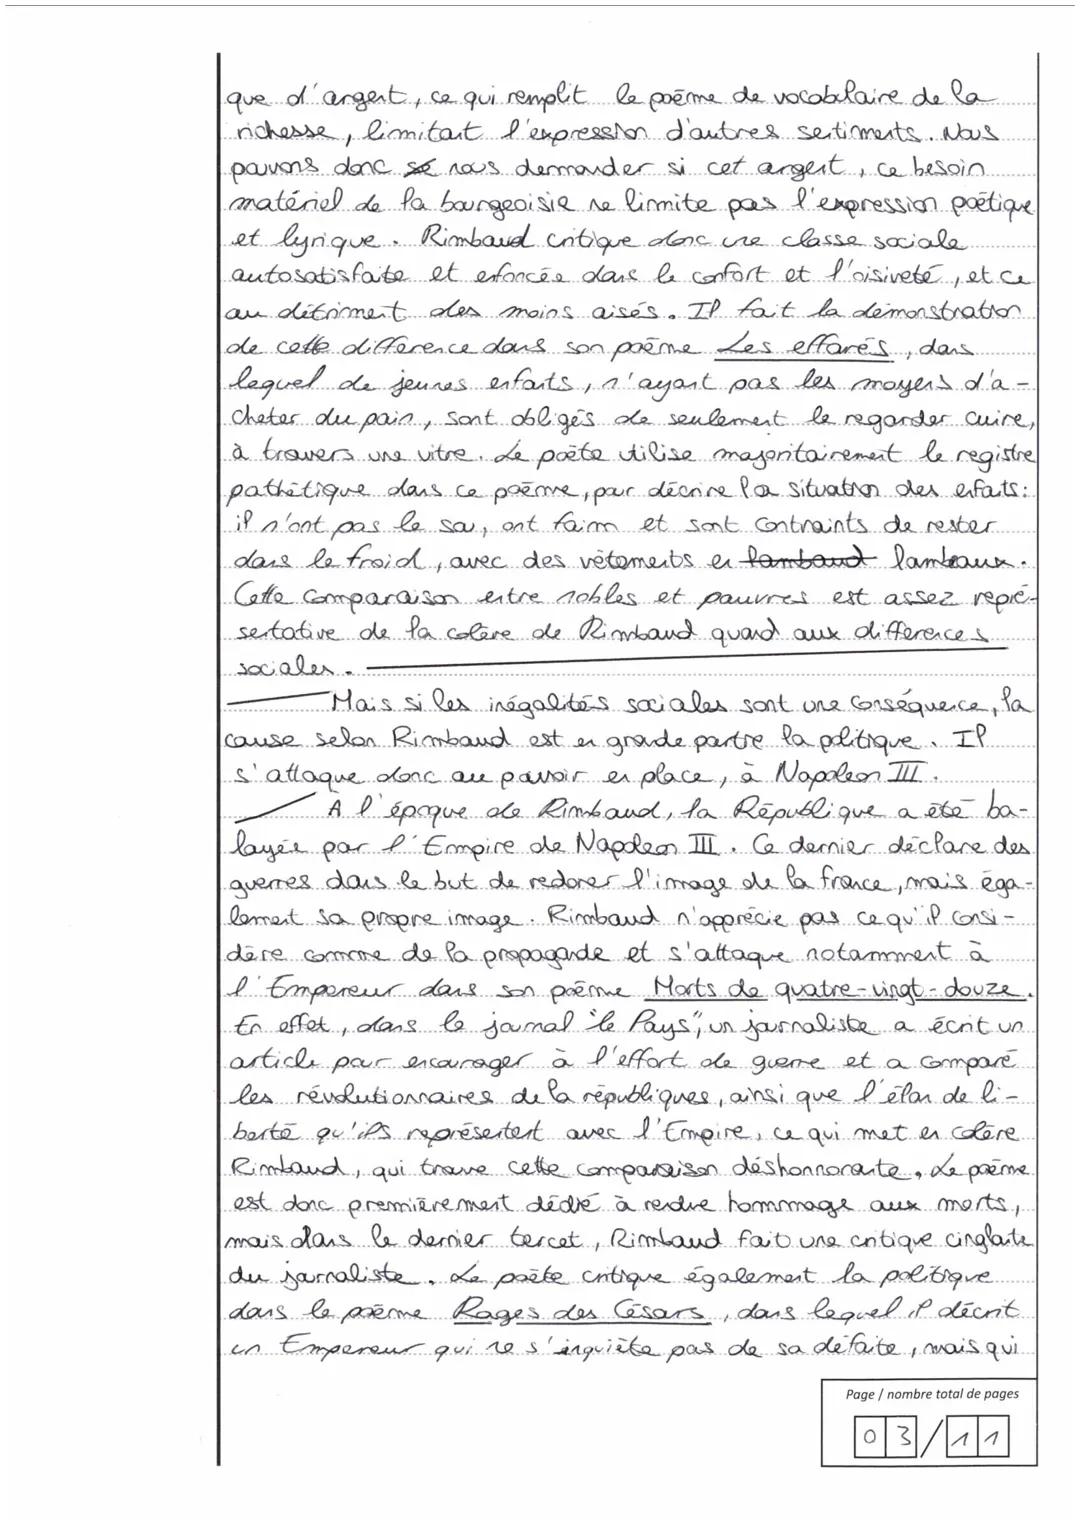 que d'argent, ce qui remplit le poème de vocabulaire de la
richesse, limitant l'expression d'autres sentiments. Nous
pouvons donc se nous demander si cet argent, ce besoin
matériel de la bourgeoisie ne limite pas l'expression poétique
et lyrique. Rimbaud critique donc une classe sociale
autosatisfaite et enfoncée dans le confort et l'oisiveté, et ce
au détriment des moins aisés. Il fait la démonstration
de cette différence dans son poème Les effarés, dans
lequel de jeunes enfants, n'ayant pas les moyens d'a-
cheter du pain, sont obligés de seulement le regarder cuire,
à travers une vitre. Le poète utilise majoritairement le registre
pathétique dans ce poème, pour décrire la situation des enfants:
il n'ont pas le sou, ont faim et sont contraints de rester
dans le froid, avec des vêtements en lambaud lambeaux.
Cette comparaison entre nobles et pauvres est assez repré-
sentative de la colère de Rimbaud quand aux différences
sociales.
Mais si les inégalités sociales sont une conséquence, la
cause selon Rimbaud est en grande partie la politique. Il
s'attaque donc au pouvoir en place, à Napoléon III.
A l'époque de Rimbaud, la République a été ba-
layée par l'Empire de Napoléon III. Ce dernier déclare des
guerres dans le but de redorer l'image de la france, mais éga-
lement sa propre image. Rimbaud n'apprécie pas ce qu'il consi-
dère comme de la propagande et s'attaque notamment à
l'Empereur dans son poème Morts de quatre-vingt-douze.
En effet, dans le journal "le Pays", un journaliste a écrit un
article pour encourager à l'effort de guerre et a comparé
les révolutionnaires de la républiques, ainsi que l'élan de li-
berté qu'ils représentent avec l'Empire, ce qui met en colère
Rimbaud, qui trouve cette comparaison déshonnorante. Le poème
est donc premièrement dédié à rendre hommage aux morts,
mais dans le dernier tercet, Rimbaud fait une critique cinglante
du journaliste. Le poète critique également la politique
dans le poème Rages des Césars, dans lequel il décrit
un Empereur qui ne s'inquiète pas de sa défaite, mais qui
Page / nombre total de pages
03/11